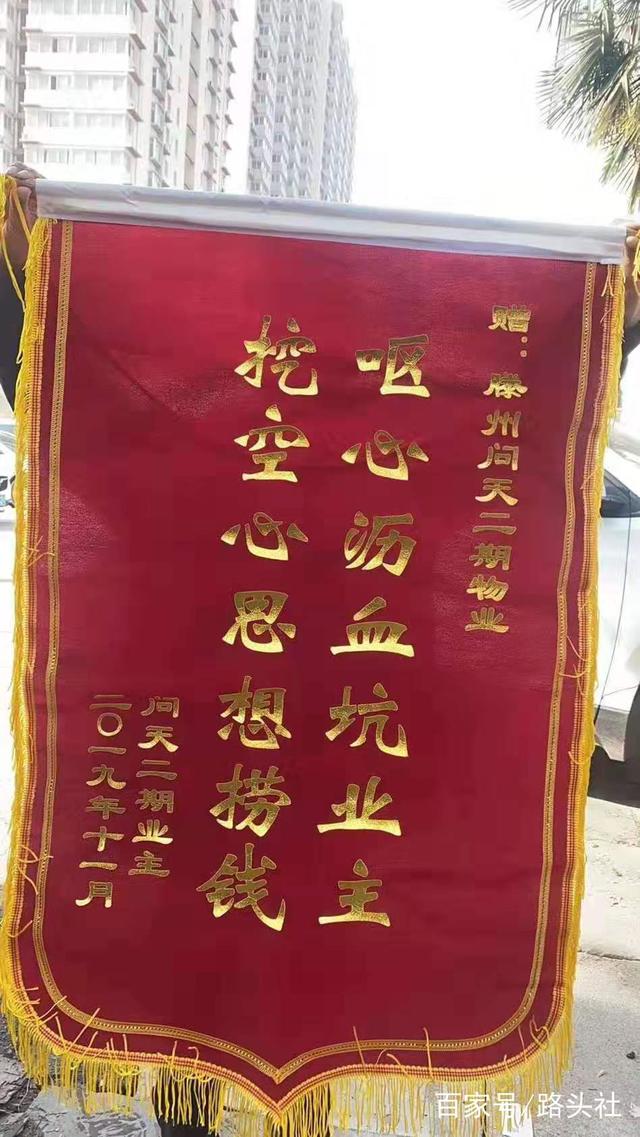 赠：滕州问天二期物业
呕心沥血坑业主
挖空心思想捞钱
问天二期业主
二〇一九年十一月
百家号/路头社